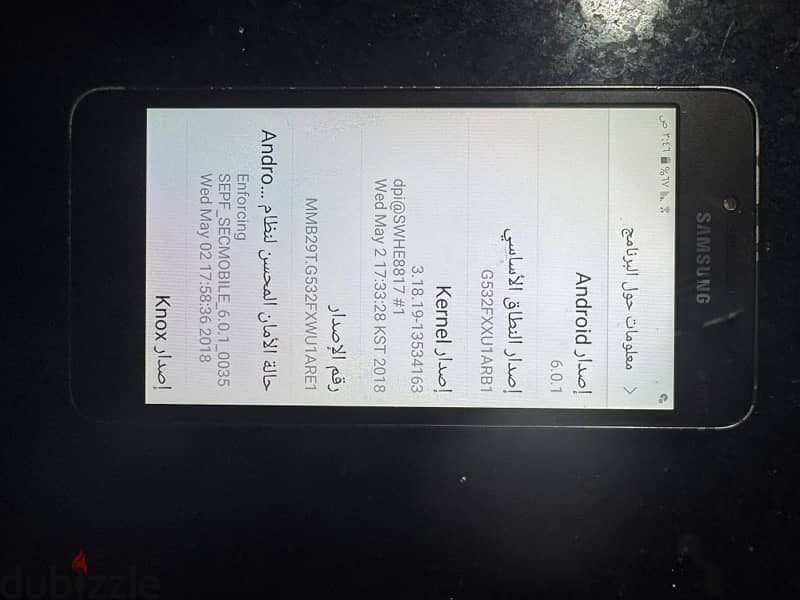 SAMSUNG
٣:٤٦ ص
%٦٧
معلومات حول البرنامج
إصدار Android
6.0.1
إصدار النطاق الأساسي
G532FXXU1ARB1
إصدار Kernel
3.18.19-13534163
dpi@SWHE8817 #1
Wed May 2 17:33:28 KST 2018
رقم الإصدار
MMB29T.G532FXWU1ARE1
حالة الأمان المحسن لنظام Andro...
Enforcing
SEPF_SECMOBILE_6.0.1_0035
Wed May 02 17:58:36 2018
إصدار Knox
dubizzle